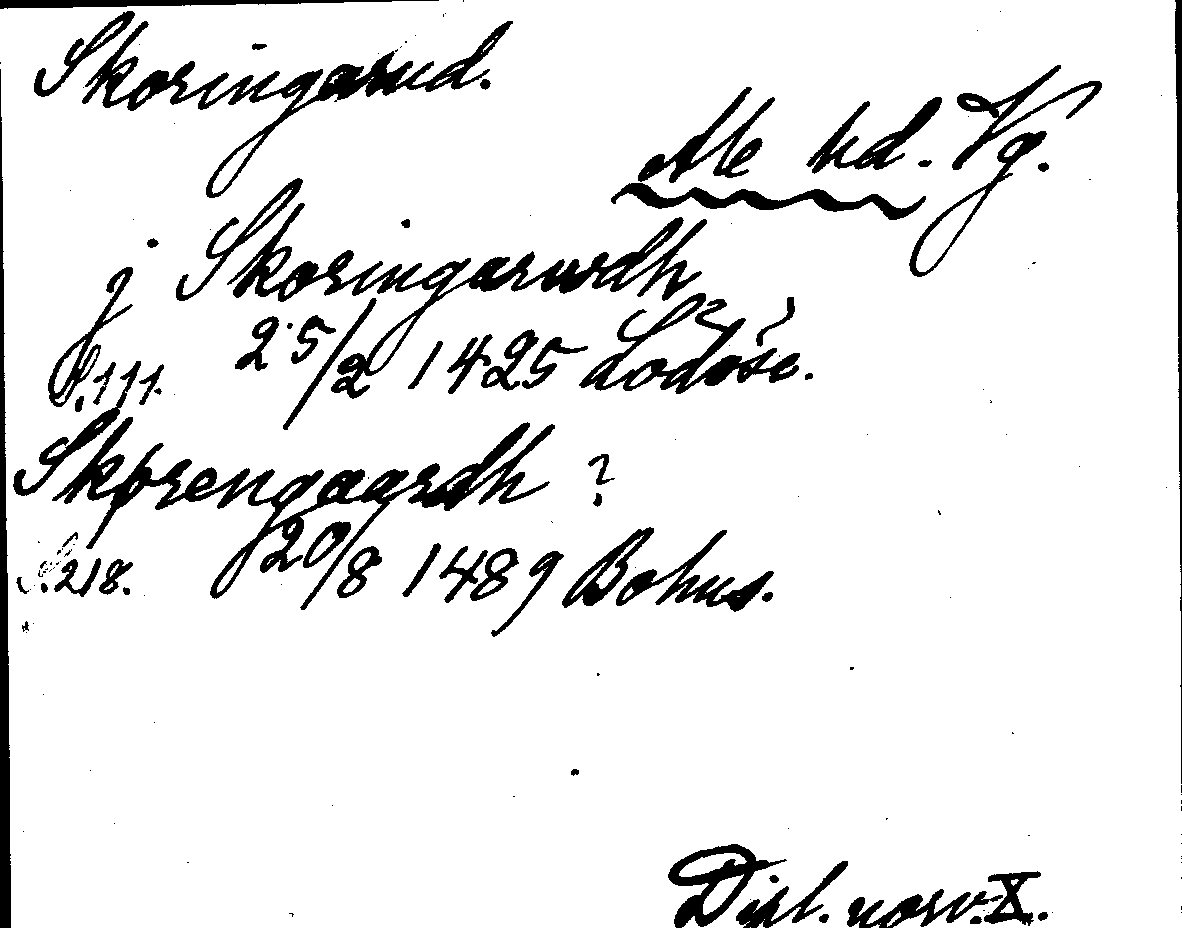 Skoringarud.
Ale hd. Vg.
j Skoringarwdh
S. 111. 25/2 1425 Lödöse.
Skørengaardh ?
S. 218. 20/8 1489 Bohus.
Dipl. norv. X.